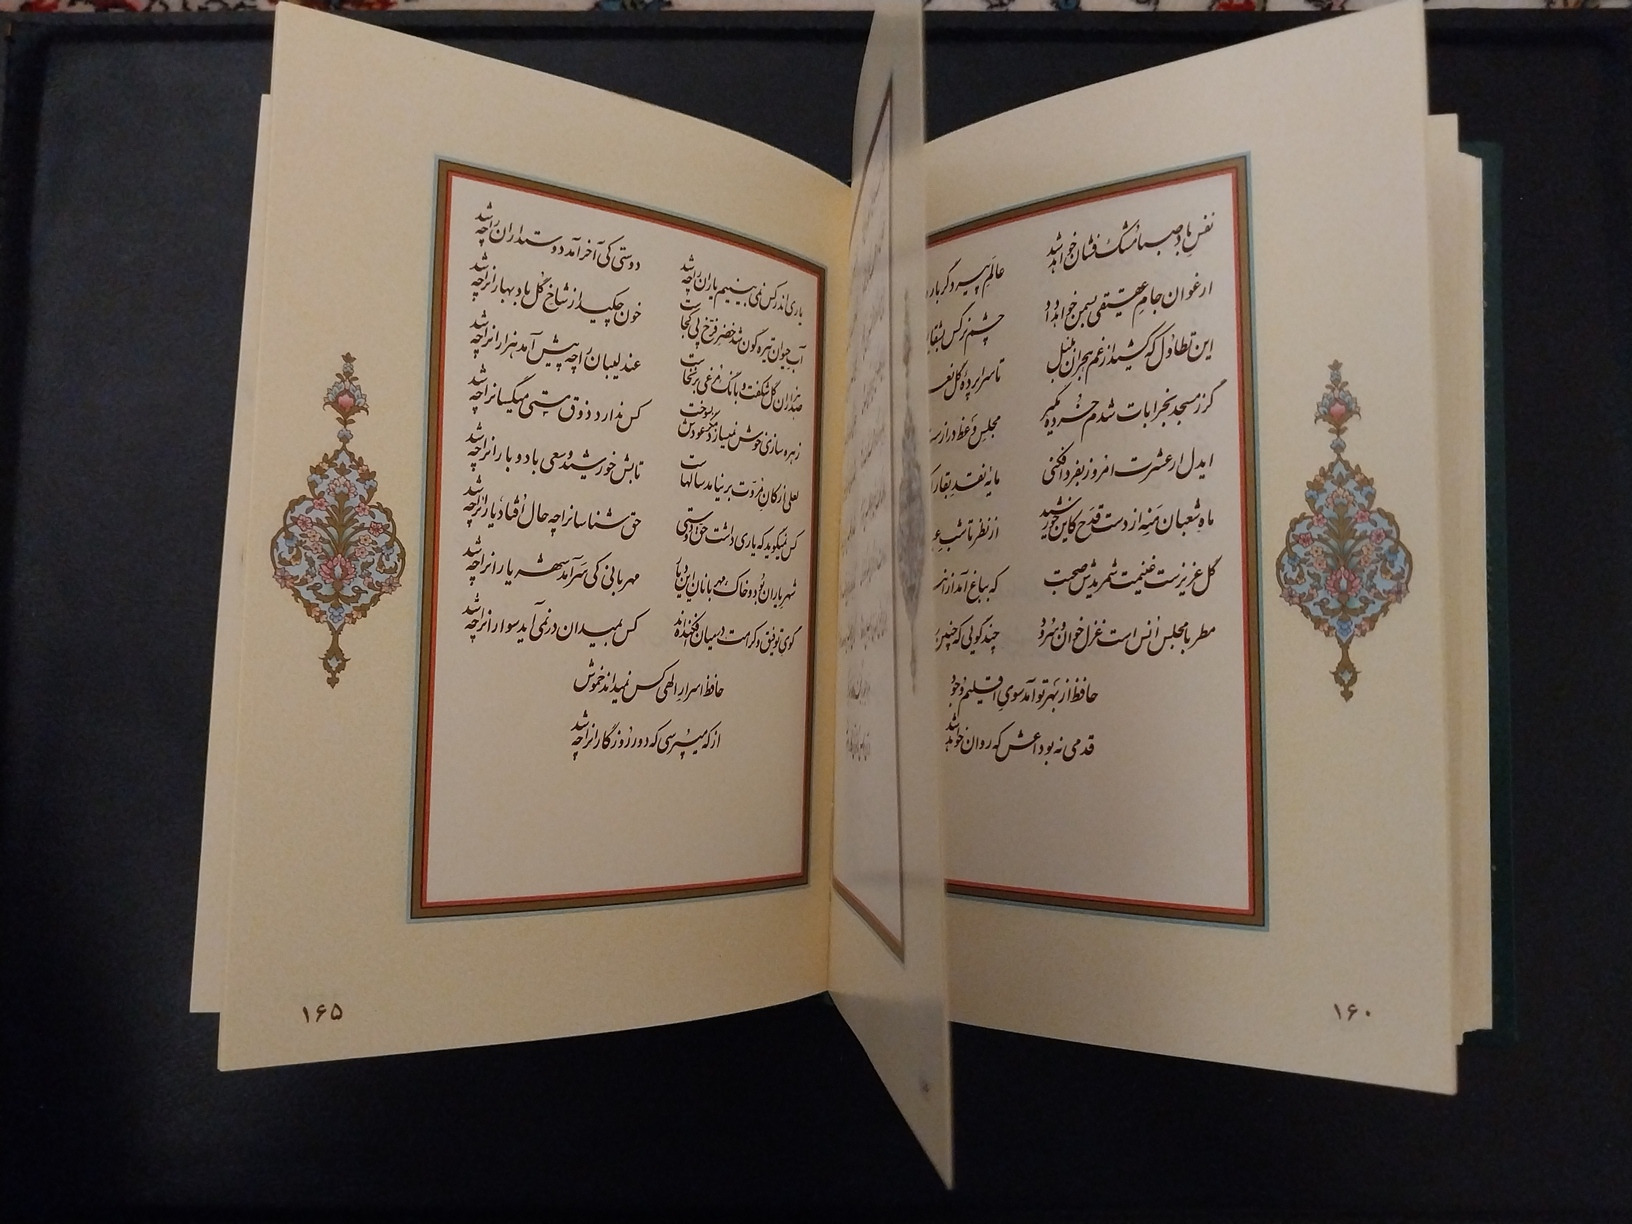 نفس باد صبا مشک فشان خواهد شد
عالم پیر دگر بار
ارغوان جام عقیقی بسمن خواهد داد
چشم نرگس بشقا
این تطاول که کشید از غم هجران بلبل
تا سراپرده گل نعـ
گر ز مسجد بخرابات شدم خرده مگیر
مجلس وعظ دراز ست
ایدل ار عشرت امروز بفردا فکنی
مایه نقد بقا را کـ
ماه شعبان منه از دست قدح کاین خورشید
از نظر تا شب عیـ
گل عزیزست غنیمت شمریدش صحبت
که بباغ آمد از
مطربا مجلس انس است غزل خوان و سرود
چند گویی که چنین ر
حافظ از بهر تو آمد سوی اقلیم وجود
قدمی نه بوداعش که روان خواهد شد
۱۶۰
یاری اندر کس نمی بینیم یاران را چه شد
دوستی کی آخر آمد دوستداران را چه شد
آب حیوان تیره گون شد خضر فرخ پی کجاست
خون چکید از شاخ گل باد بهارانرا چه شد
صد هزاران گل شکفت و بانگ مرغی برنخاست
عندلیبان را چه پیش آمد هزارانرا چه شد
زهره سازی خوش نمیسازد مگر عودش بسوخت
کس ندارد ذوق مستی میگسارانرا چه شد
لعلی از کان مروت برنیامد سالهاست
تابش خورشید و سعی باد و بارانرا چه شد
کس نمیگوید که یاری داشت حق دوستی
حق شناسانرا چه حال افتاد یارانرا چه شد
شهر یاران بود و خاک مهربانان این دیار
مهربانی کی سر آمد شهریارانرا چه شد
گوی توفیق و کرامت در میان افکنده اند
کس بمیدان در نمی آید سوارانرا چه شد
حافظ اسرار الهی کس نمیداند خموش
از که میپرسی که دور روزگارانرا چه شد
۱۶۵